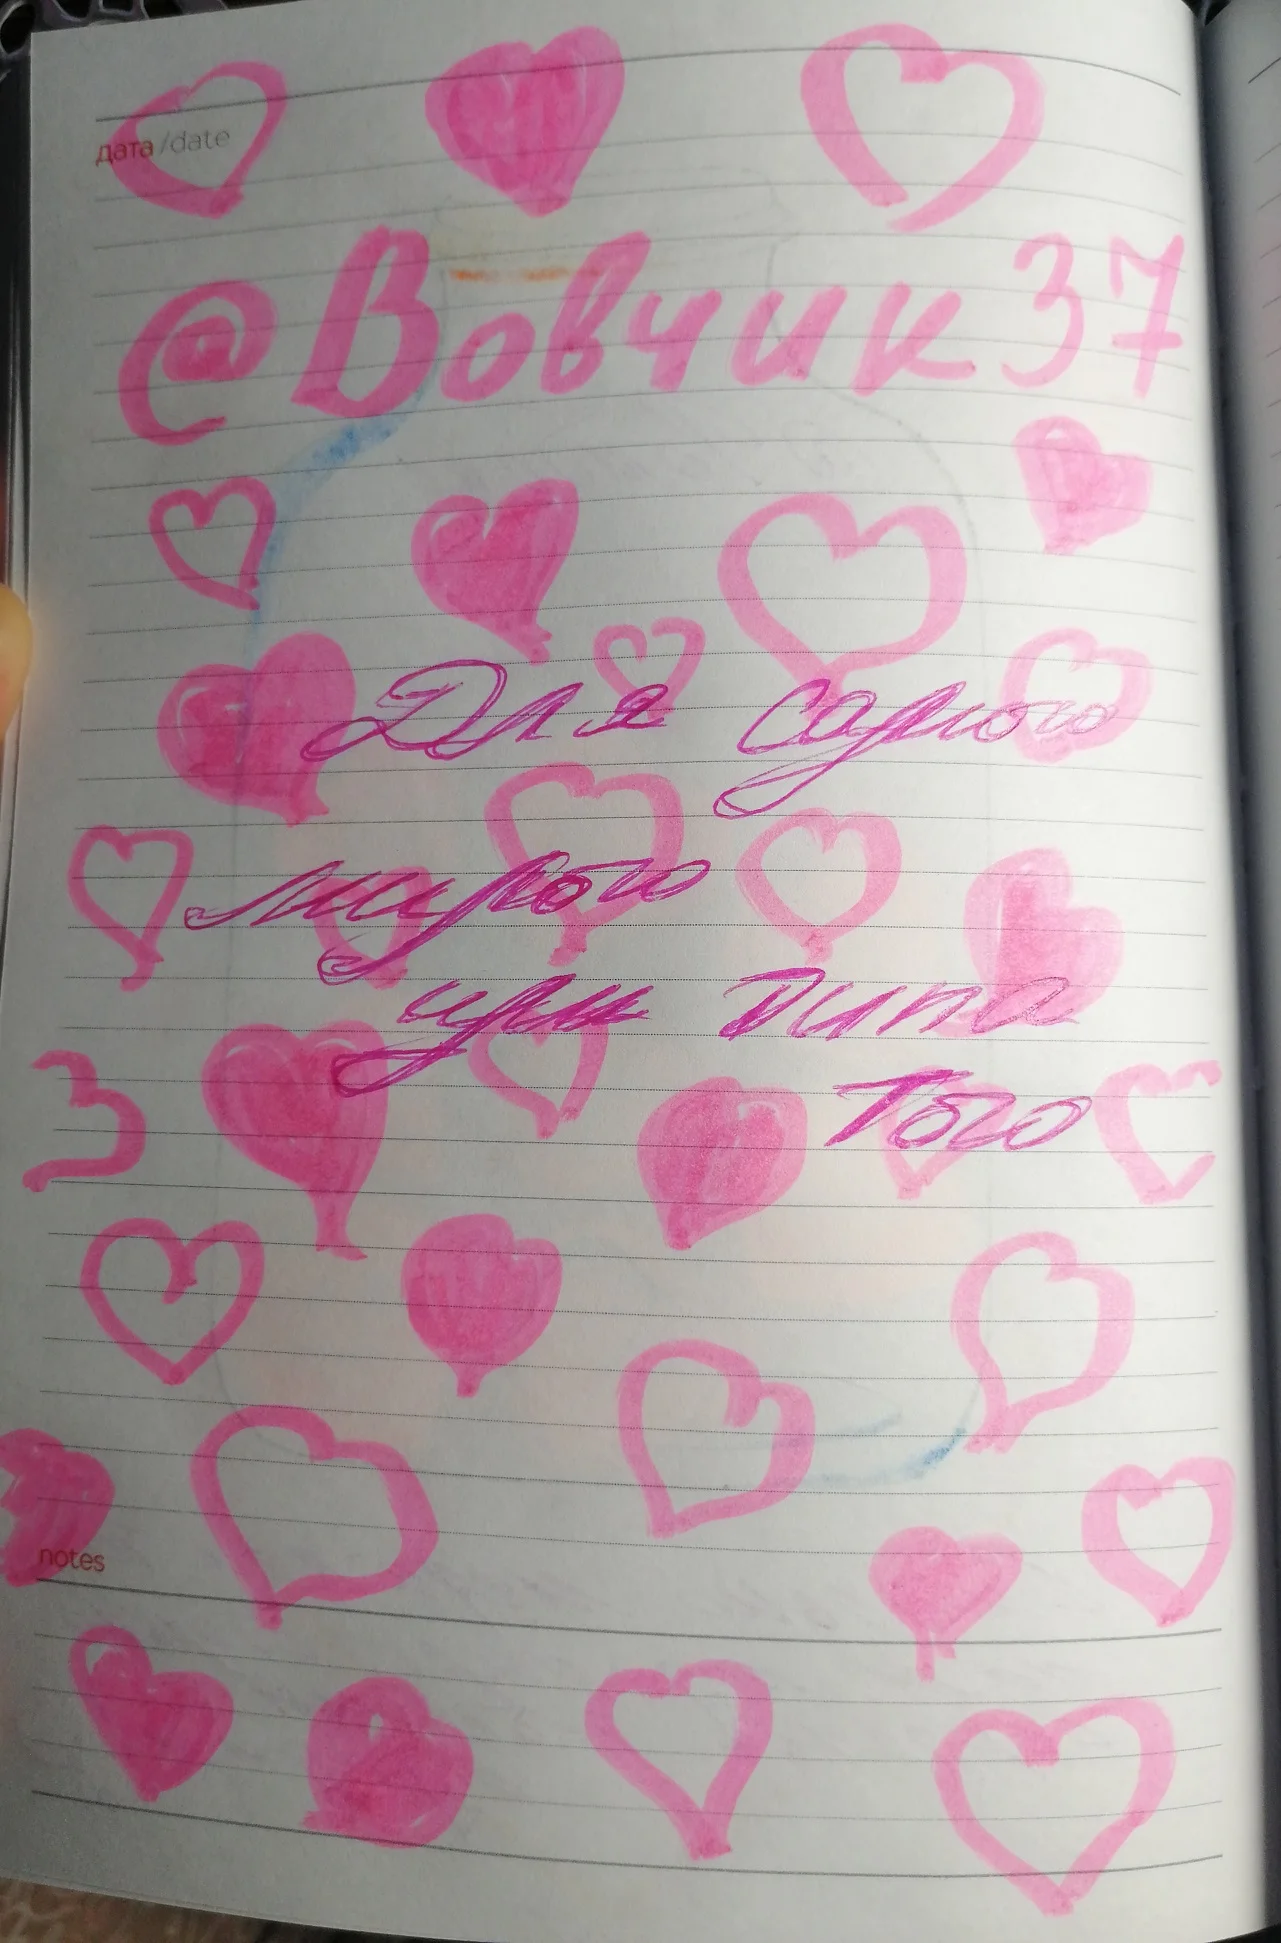 дата/date
@Вовчик37
Для одного
милого
или типа
того
notes